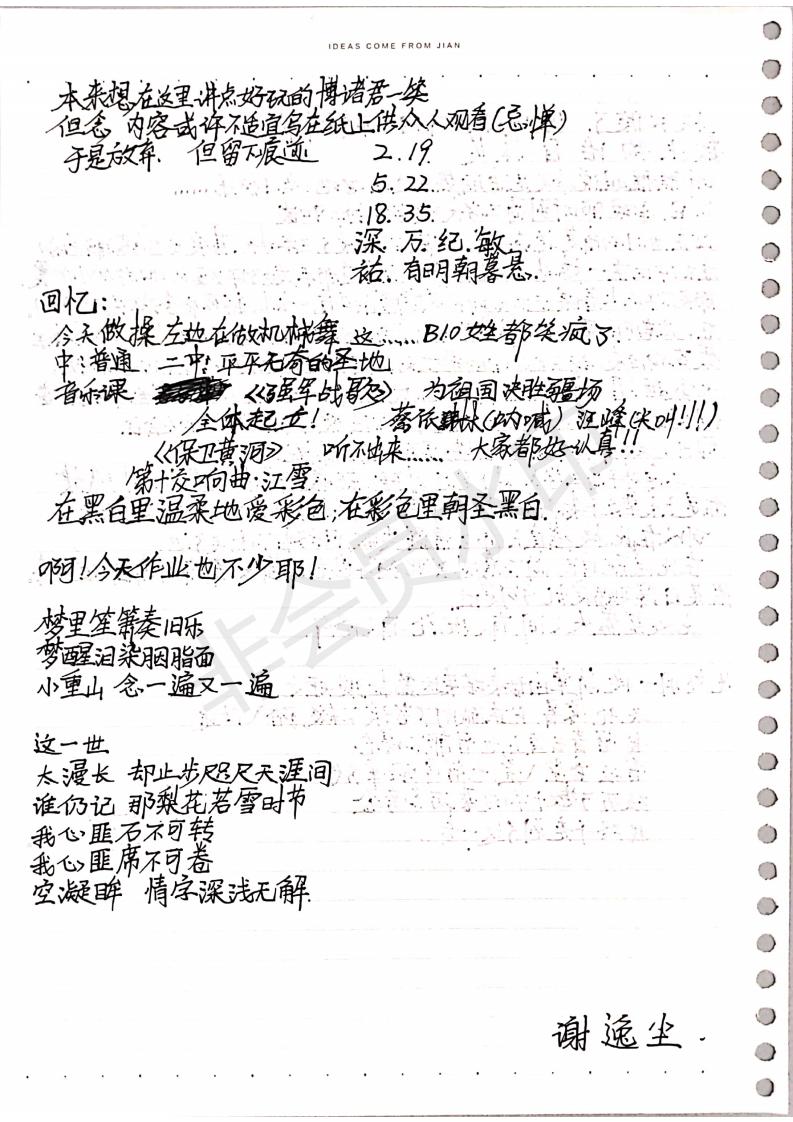 IDEAS COME FROM JIAN
本来想在这里讲点好玩的博诸君一笑
但念 内容或许不适宜写在纸上供众人观看(忌惮)
于是放弃. 但留下痕迹 2.19
5.22
18.35
深.万.纪.敏
祐.有明朝暮悬.
回忆:
今天做操左边在做机械舞 这…… B10女生都笑疯了
中:普通 二中:平平无奇的圣地
音乐课 《强军战歌》 为祖国决胜疆场
全体起立! 蔡依林(呐喊) 汪峰(尖叫!!!)
《保卫黄河》 听不出来…… 大家都好认真!!
第十交响曲·江雪
在黑白里温柔地爱彩色,在彩色里朝圣黑白.
啊!今天作业也不少耶!
梦里笙箫奏旧乐
梦醒泪染胭脂面
小重山 念一遍又一遍
这一世
太漫长 却止步咫尺天涯间
谁仍记 那梨花若雪时节
我心匪石不可转
我心匪席不可卷
空凝眸 情字深浅无解.
谢逸尘.
非会员水印